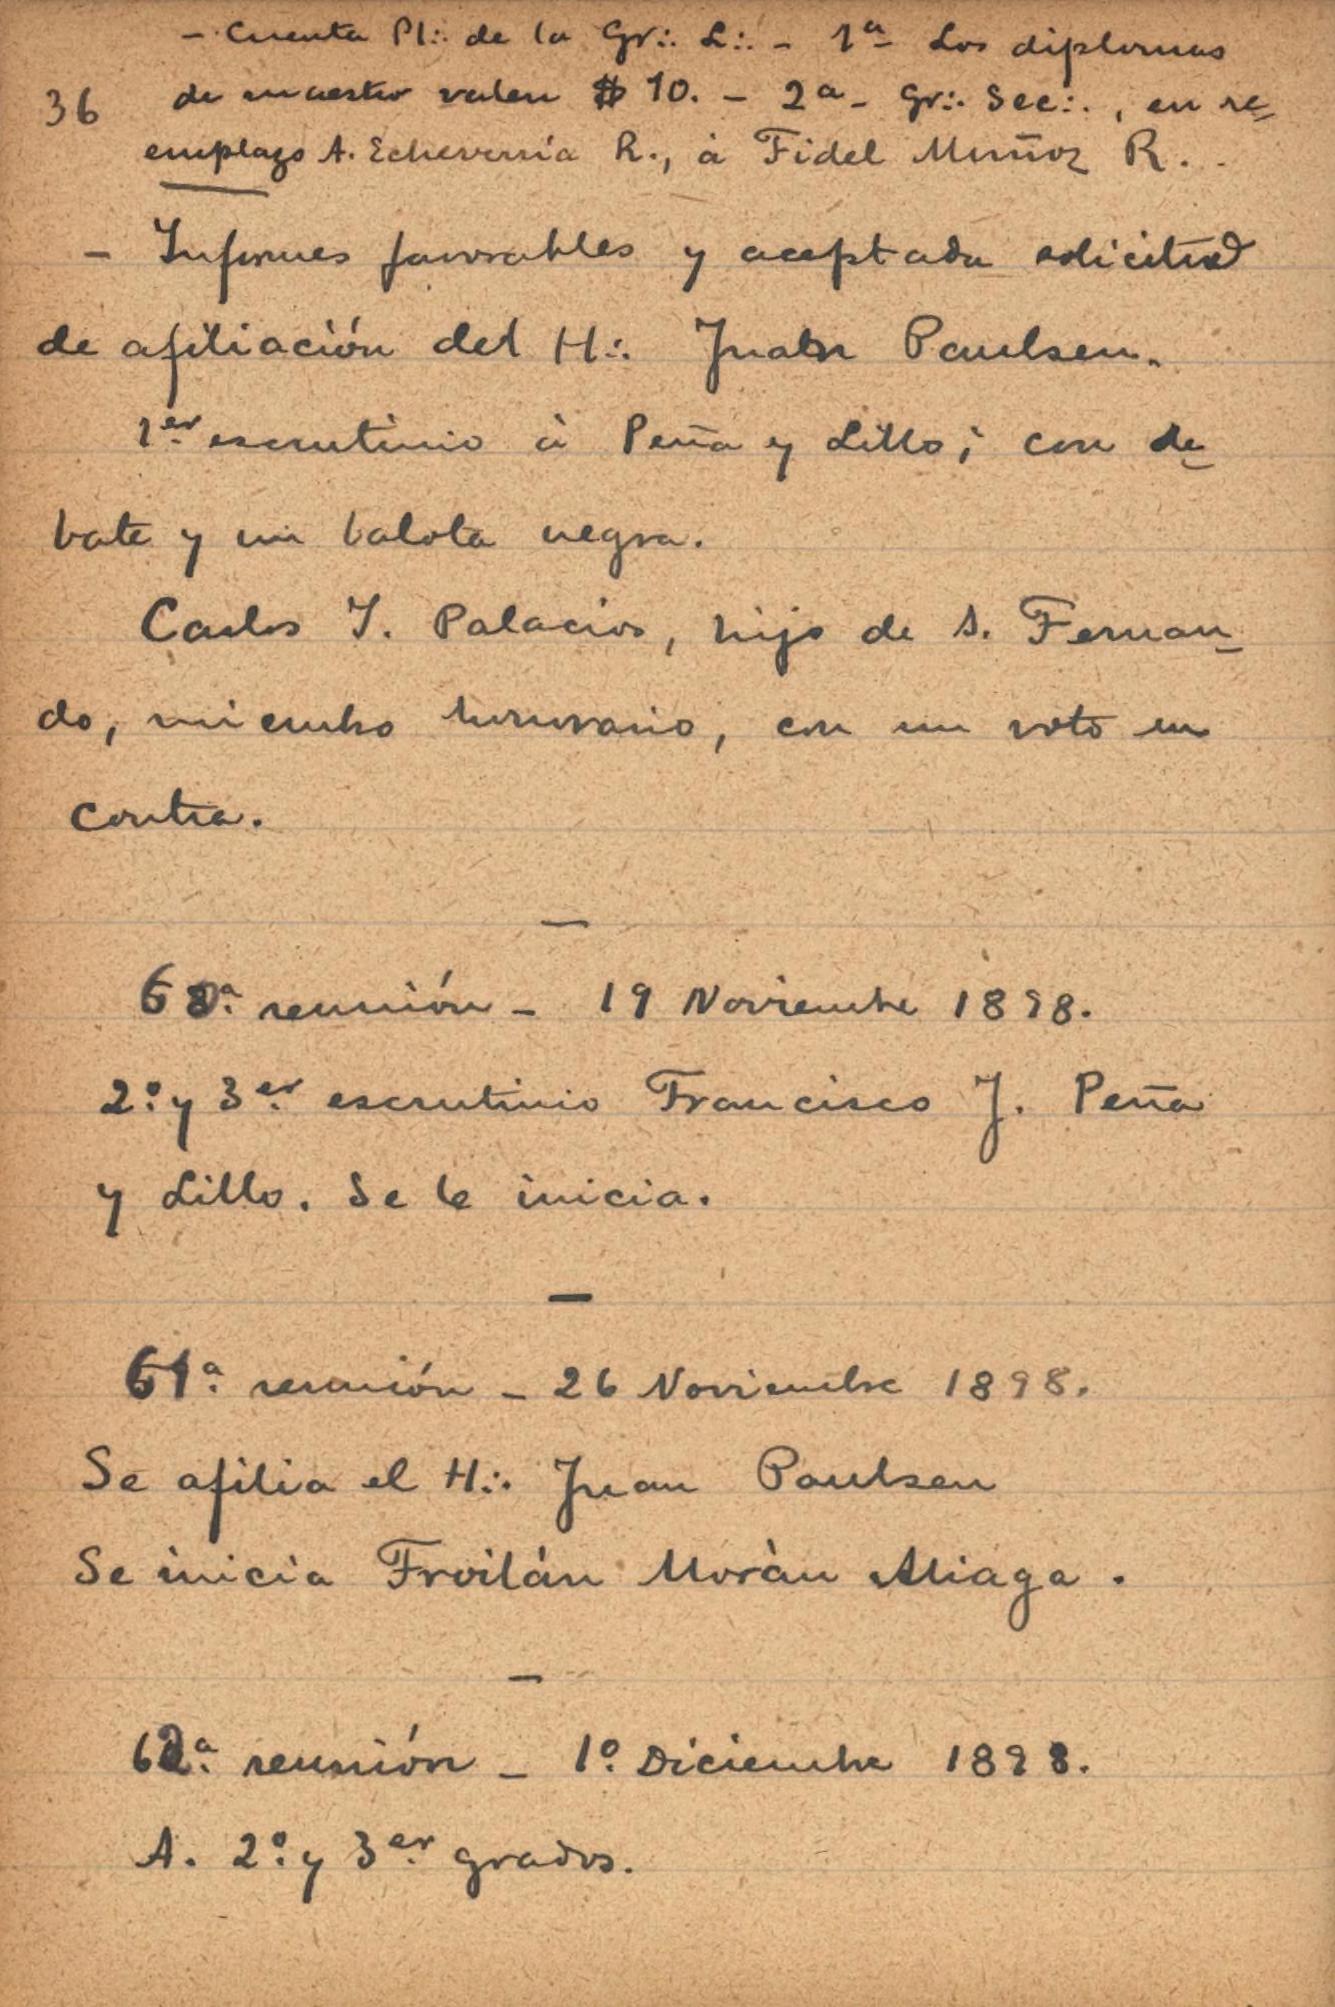 - Cuenta Pl∴ de la Gr∴ L∴ - 1ª Los diplomas
36 de maestro valen $ 10. - 2ª - Gr∴ Sec∴, en re-
emplazo A. Echeverría R., à Fidel Muñoz R. -
- Informes favorables y aceptada solicitud
de afiliación del H∴ Juan Paulsen.
1er escrutinio à Peña y Lillo; con de-
bate y una balota negra.
Carlos J. Palacios, hijo de D. Fernan-
do, miembro honorario, con un voto en
contra.
—
60ª reunión - 19 Noviembre 1898.
2º y 3er escrutinio Francisco J. Peña
y Lillo. Se le inicia.
—
61ª reunión - 26 Noviembre 1898.
Se afilia el H∴ Juan Paulsen
Se inicia Froilán Moràn Aliaga.
—
62ª reunión - 1º Diciembre 1898.
A. 2º y 3er grados.